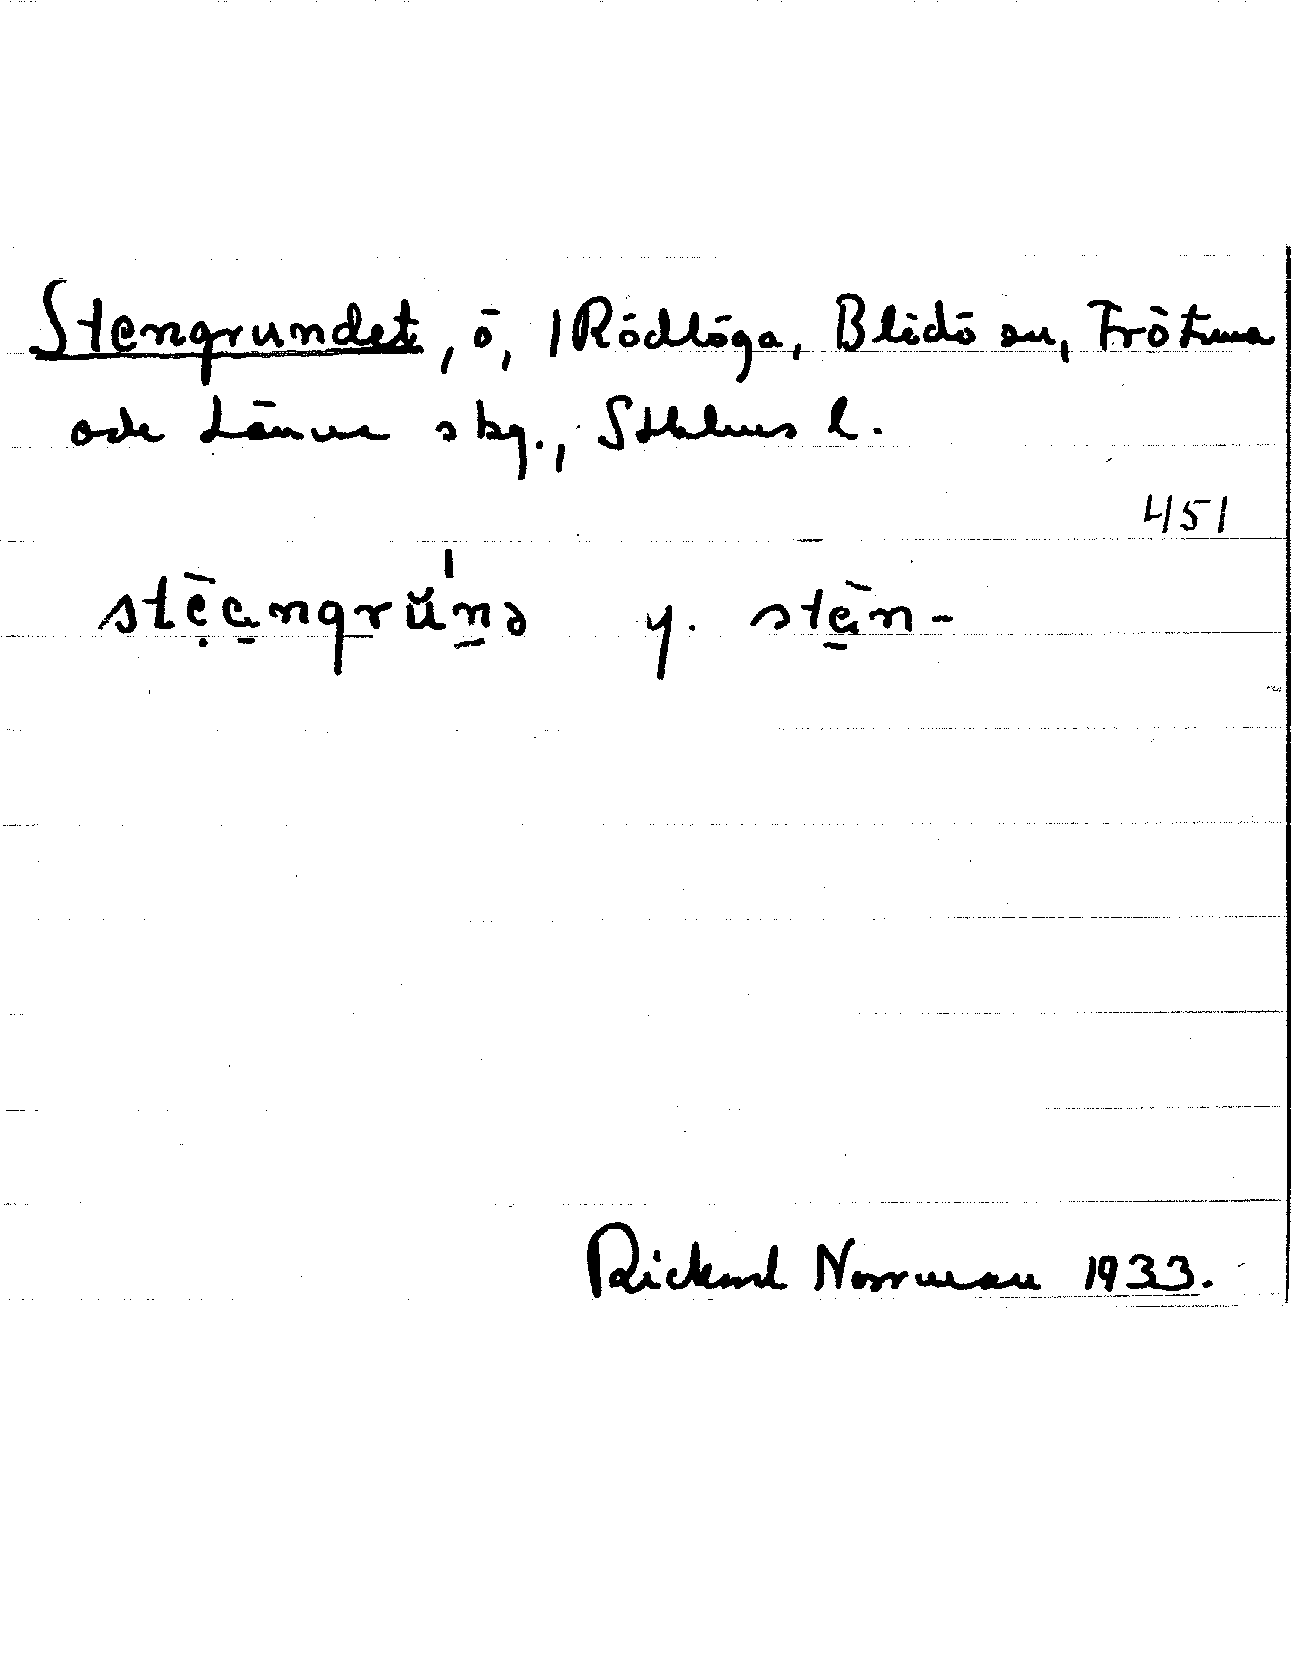 Stengrundet, ö, /Rödlöga, Blidö sn, Frötuna
och Länna skg., Sthlms l.
451
stē̜a̱ngrŭ'n̠ə y. stēa̱n-
Rickard Norrman 1933.